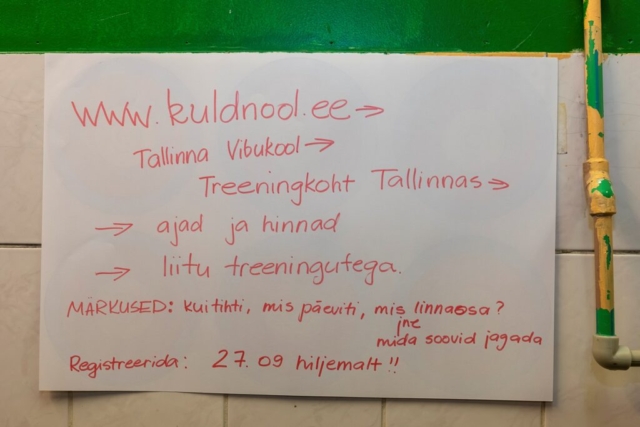 www.kuldnool.ee →
Tallinna Vibukool →
Treeningkoht Tallinnas →
→ ajad ja hinnad
→ liitu treeningutega.
MÄRKUSED: kui tihti, mis päeviti, mis linnaosa?
jne
mida soovid jagada
Registreerida: 27.09 hiljemalt!!